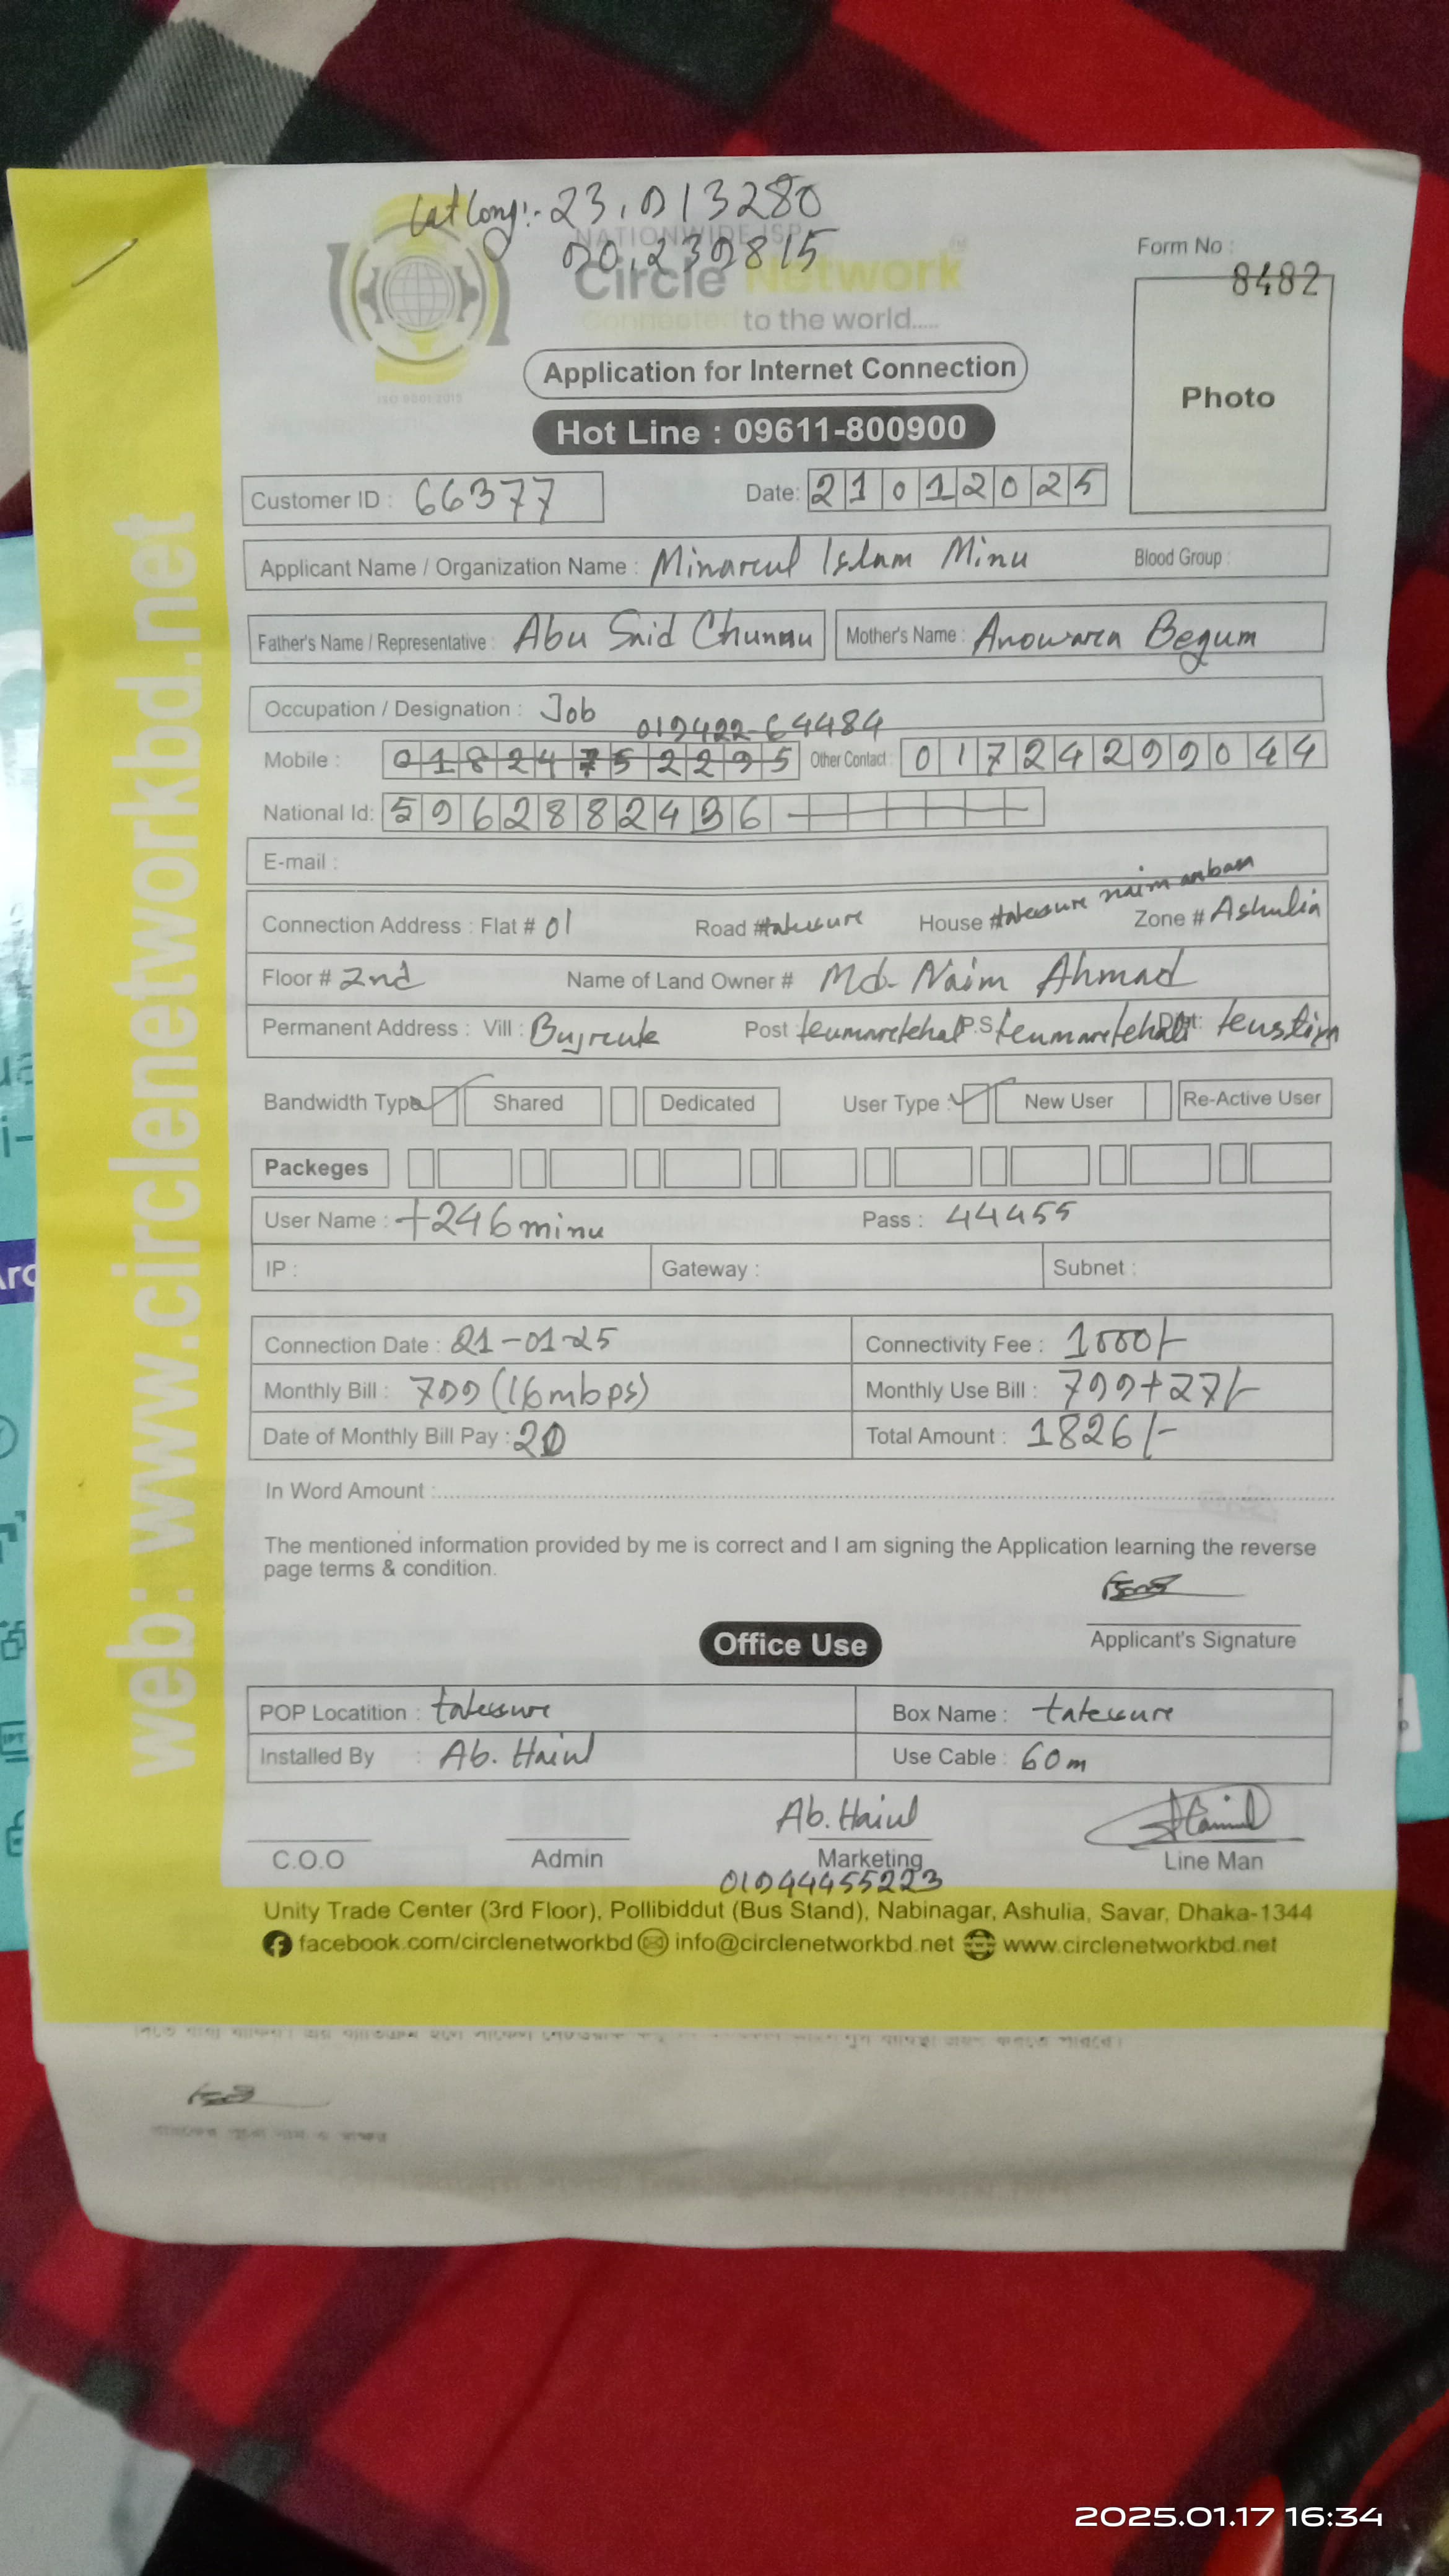 Lat Long:- 23.913280
90.239815
NATIONWIDE ISP
Circle Network
Connected to the world.....
ISO 9001:2015
Form No :
8482
Photo
Application for Internet Connection
Hot Line : 09611-800900
Customer ID : 66377
Date: 21012025
Applicant Name / Organization Name : Minarul Islam Minu Blood Group :
Father's Name / Representative : Abu Said Chunnu Mother's Name : Anowara Begum
Occupation / Designation : Job
019422-64484
Mobile : 01824752295 Other Contact : 01724299044
National Id: 5962882436
E-mail :
Connection Address : Flat # 01 Road # House # Zone # Ashulia
Floor # 2nd Name of Land Owner # Md. Naim Ahmad
Permanent Address : Vill : Post : P.S Dist:
Bandwidth Type Shared Dedicated User Type : New User Re-Active User
Packeges
User Name : t246minu Pass : 44455
IP : Gateway : Subnet :
Connection Date : 21-01-25 Connectivity Fee : 1000/-
Monthly Bill : 799 (16mbps) Monthly Use Bill : 799+27/-
Date of Monthly Bill Pay : 20 Total Amount : 1826/-
In Word Amount :
The mentioned information provided by me is correct and I am signing the Application learning the reverse
page terms & condition.
Applicant's Signature
Office Use
POP Locatition : Box Name :
Installed By : Ab. Use Cable : 60m
Ab.
C.O.O Admin Marketing Line Man
01944455223
Unity Trade Center (3rd Floor), Pollibiddut (Bus Stand), Nabinagar, Ashulia, Savar, Dhaka-1344
facebook.com/circlenetworkbd info@circlenetworkbd.net www.circlenetworkbd.net
web: www.circlenetworkbd.net
2025.01.17 16:34